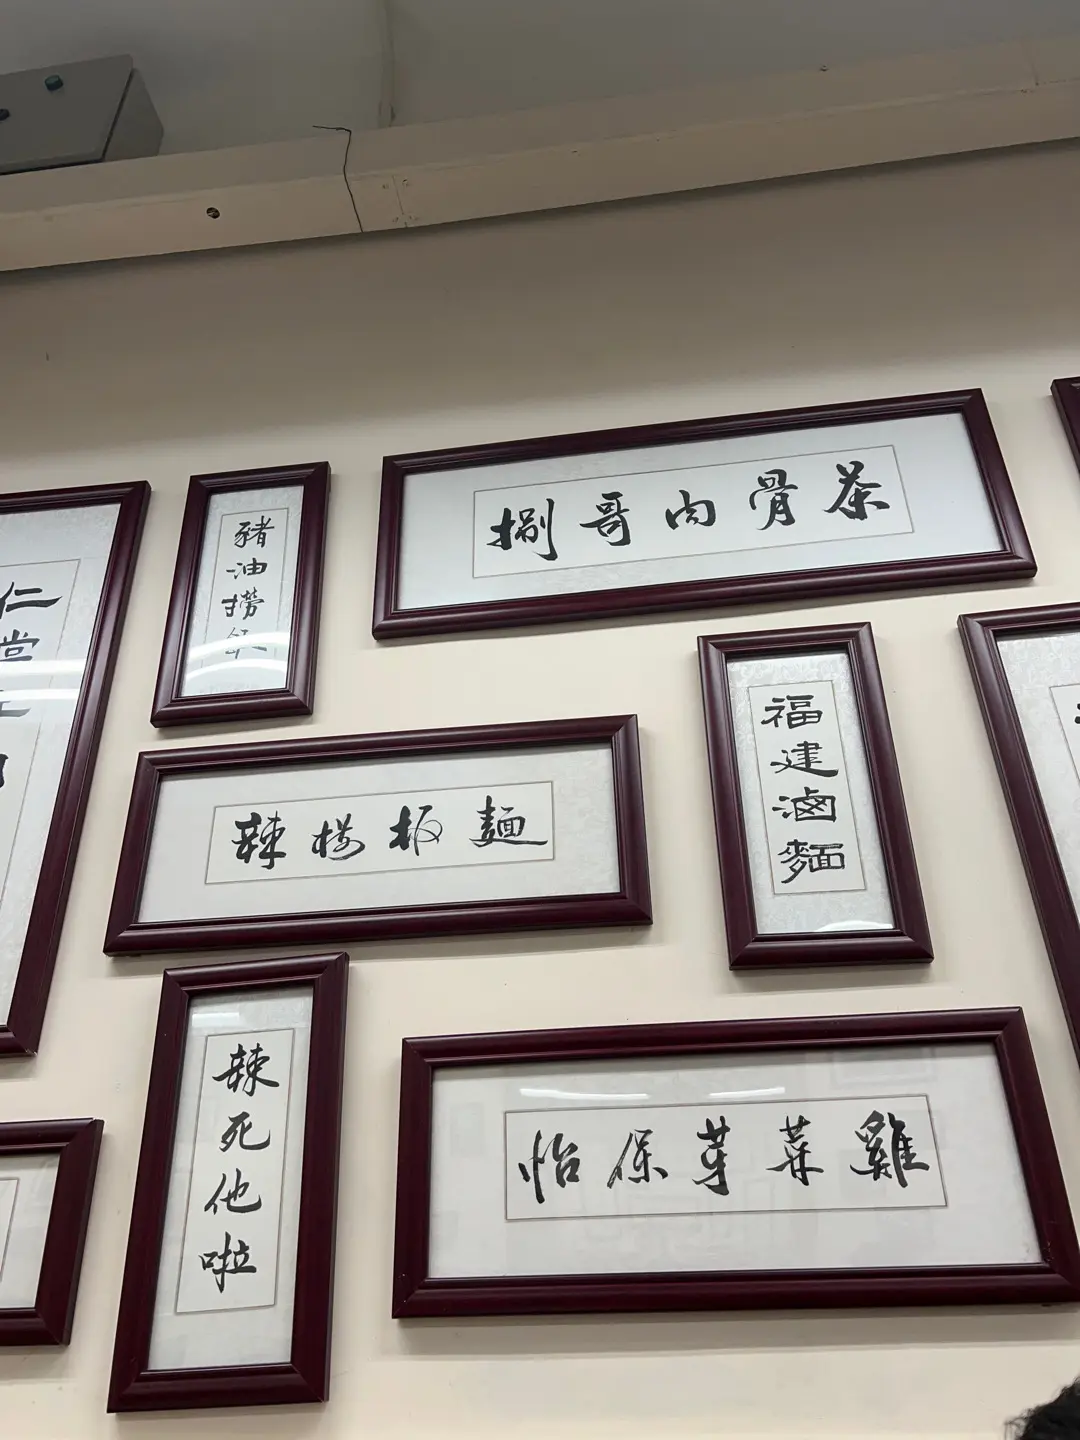 豬油撈飯
捌哥肉骨茶
福建滷麵
辣椒板麵
辣死他啦
怡保芽菜雞
仁
堂